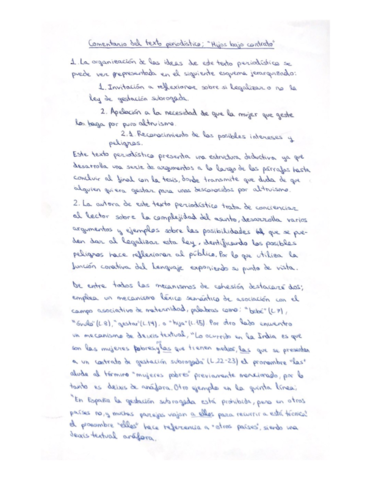 Comentario del texto periodístico: "Hijos bajo contrato"
1. La organización de las ideas de este texto periodístico se
puede ver representada en el siguiente esquema jerarquizado:
1. Invitación a reflexionar sobre si legalizar o no la
ley de gestación subrogada.
2. Apelación a la necesidad de que la mujer que geste
lo haga por puro altruismo.
2.1 Reconocimiento de los posibles intereses y
peligros.
Este texto periodístico presenta una estructura deductiva ya que
desarrolla una serie de argumentos a lo largo de los párrafos hasta
concluir al final con la tesis, donde transmite que duda de que
alguien quiera gestar para unos desconocidos por altruismo.
2. La autora de este texto periodístico trata de concienciar
al lector sobre la complejidad del asunto, desarrolla varios
argumentos y ejemplos sobre las posibilidades que se pue-
den dar al legalizar esta ley, identificando los posibles
peligros hace reflexionar al público. Por lo que utiliza la
función conativa del lenguaje exponiendo su punto de vista.
De entre todos los mecanismos de cohesión destacaré dos;
emplea un mecanismo léxico semántico de asociación con el
campo asociativo de maternidad, palabras como: "bebé" (l. ),
(l. 9), "gestar" (l. 14) o "hijo" (l. 18). Por otro lado encuentro
un mecanismo de deixis textual. "Lo ocurrido en la India es que
son las mujeres pobres las que tienen estas, las que se prestan
a un contrato de gestación subrogada" (l. 22-23) el pronombre "las"
alude al término "mujeres pobres" previamente mencionado, por lo
tanto es deixis de anáfora. Otro ejemplo en la quinta línea:
"En España la gestación subrogada está prohibida, pero en otros
países no, y muchas parejas viajan a ellos para recurrir a esta técnica"
el pronombre "ellos" hace referencia a "otros países", siendo una
deixis textual anáfora.